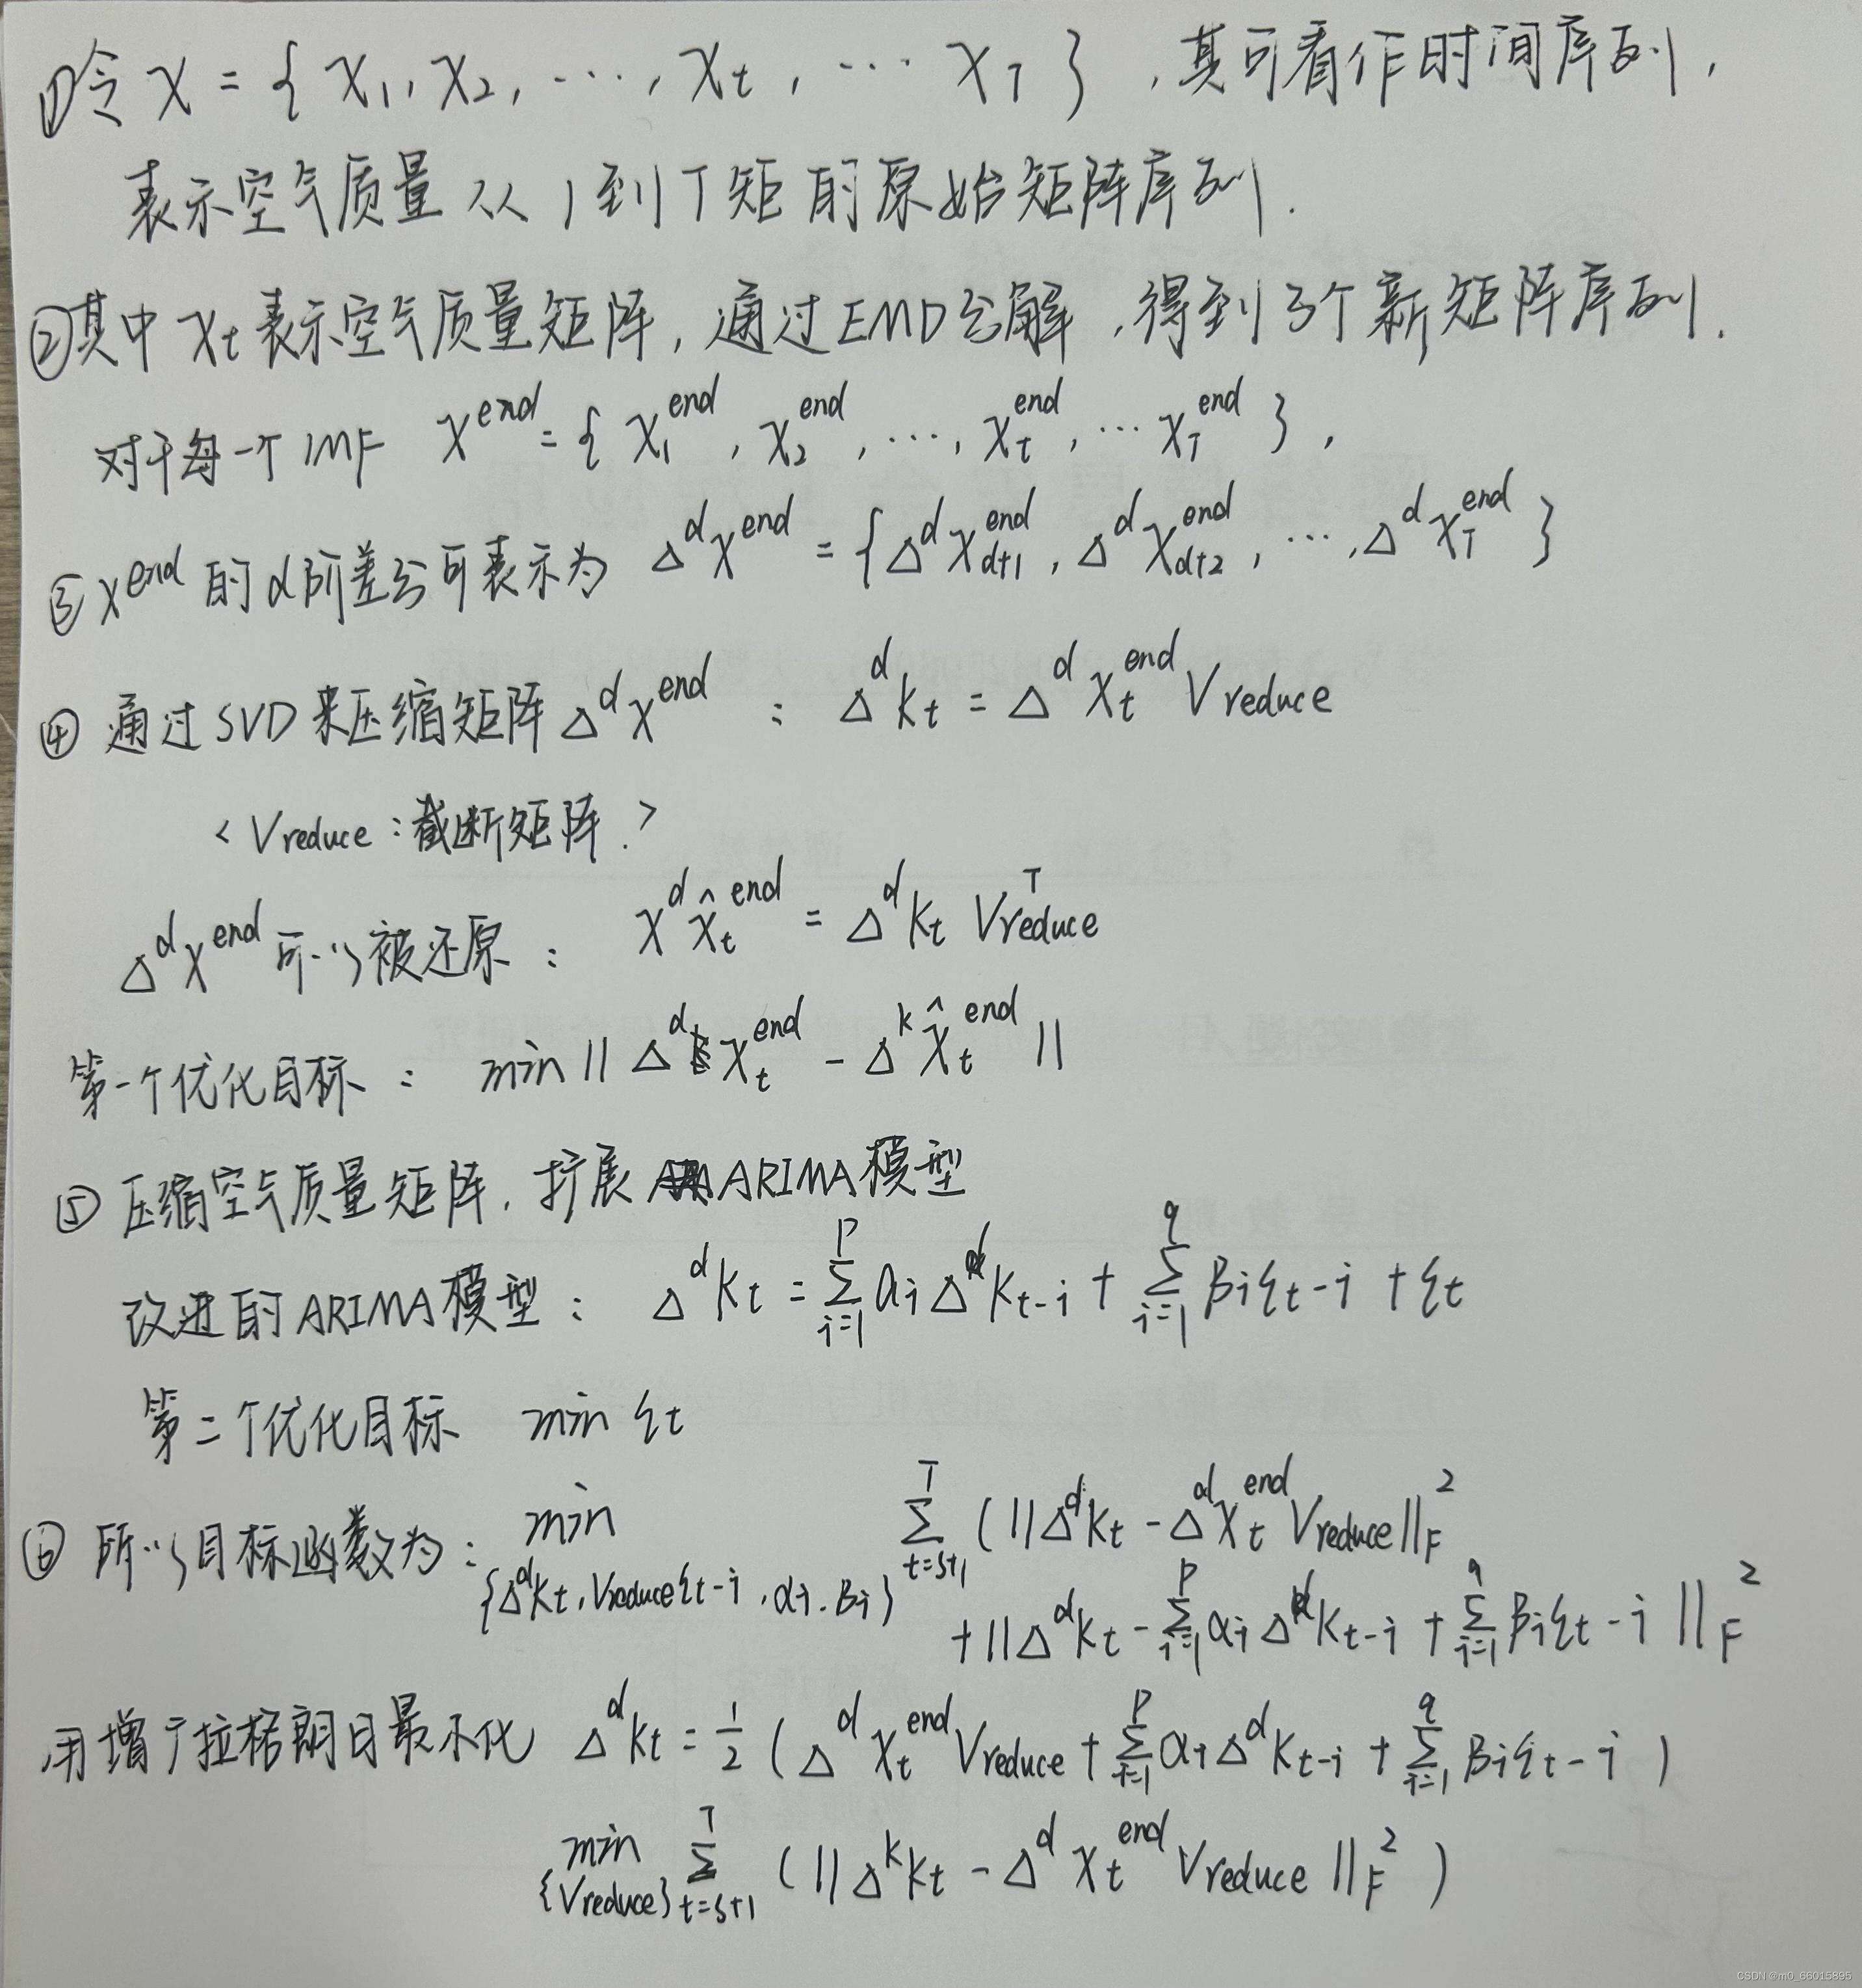 ①令 X = { X₁, X₂, ⋯, Xt, ⋯ XT } ,其可看作时间序列,
表示空气质量从1到T矩的原始矩阵序列.
②其中 Xt表示空气质量矩阵,通过EMD分解,得到3个新矩阵序列.
对于每一个IMF X^end = { X₁^end, X₂^end, ⋯, Xt^end, ⋯ XT^end } ,
③X^end 的d阶差分可表示为 Δ^d X^end = { Δ^d X_{d+1}^end , Δ^d X_{d+2}^end , ⋯, Δ^d X_T^end }
④ 通过SVD来压缩矩阵 Δ^d X^end : Δ^d Kt = Δ^d Xt^end Vreduce
< Vreduce : 截断矩阵. >
Δ^d X^end 可以被还原 : X^d X̂t^end = Δ^d Kt Vreduce^T
第一个优化目标 : min || Δ^d Xt^end - Δ^k X̂t^end ||
⑤ 压缩空气质量矩阵,扩展 ARIMA模型
改进的ARIMA模型 : Δ^d Kt = Σ_{i=1}^{P} αi Δ^d K_{t-i} + Σ_{i=1}^{q} βi ξt-i + ξt
第二个优化目标 min ξt
⑥ 所以目标函数为 : min {Δ^d Kt, Vreduce ξt-i , αi. βi} Σ_{t=s+1}^{T} (|| Δ^d Kt - Δ^d Xt^end Vreduce ||_F^2
+ || Δ^d Kt - Σ_{i=1}^{P} αi Δ^d K_{t-i} + Σ_{i=1}^{q} βi ξt-i ||_F^2
用增广拉格朗日最小化 Δ^d Kt = 1/2 ( Δ^d Xt^end Vreduce + Σ_{i=1}^{P} αi Δ^d K_{t-i} + Σ_{i=1}^{q} βi ξt-i )
min {Vreduce} Σ_{t=s+1}^{T} ( || Δ^k Kt - Δ^d Xt^end Vreduce ||_F^2 )
CSDN @m0_66015895